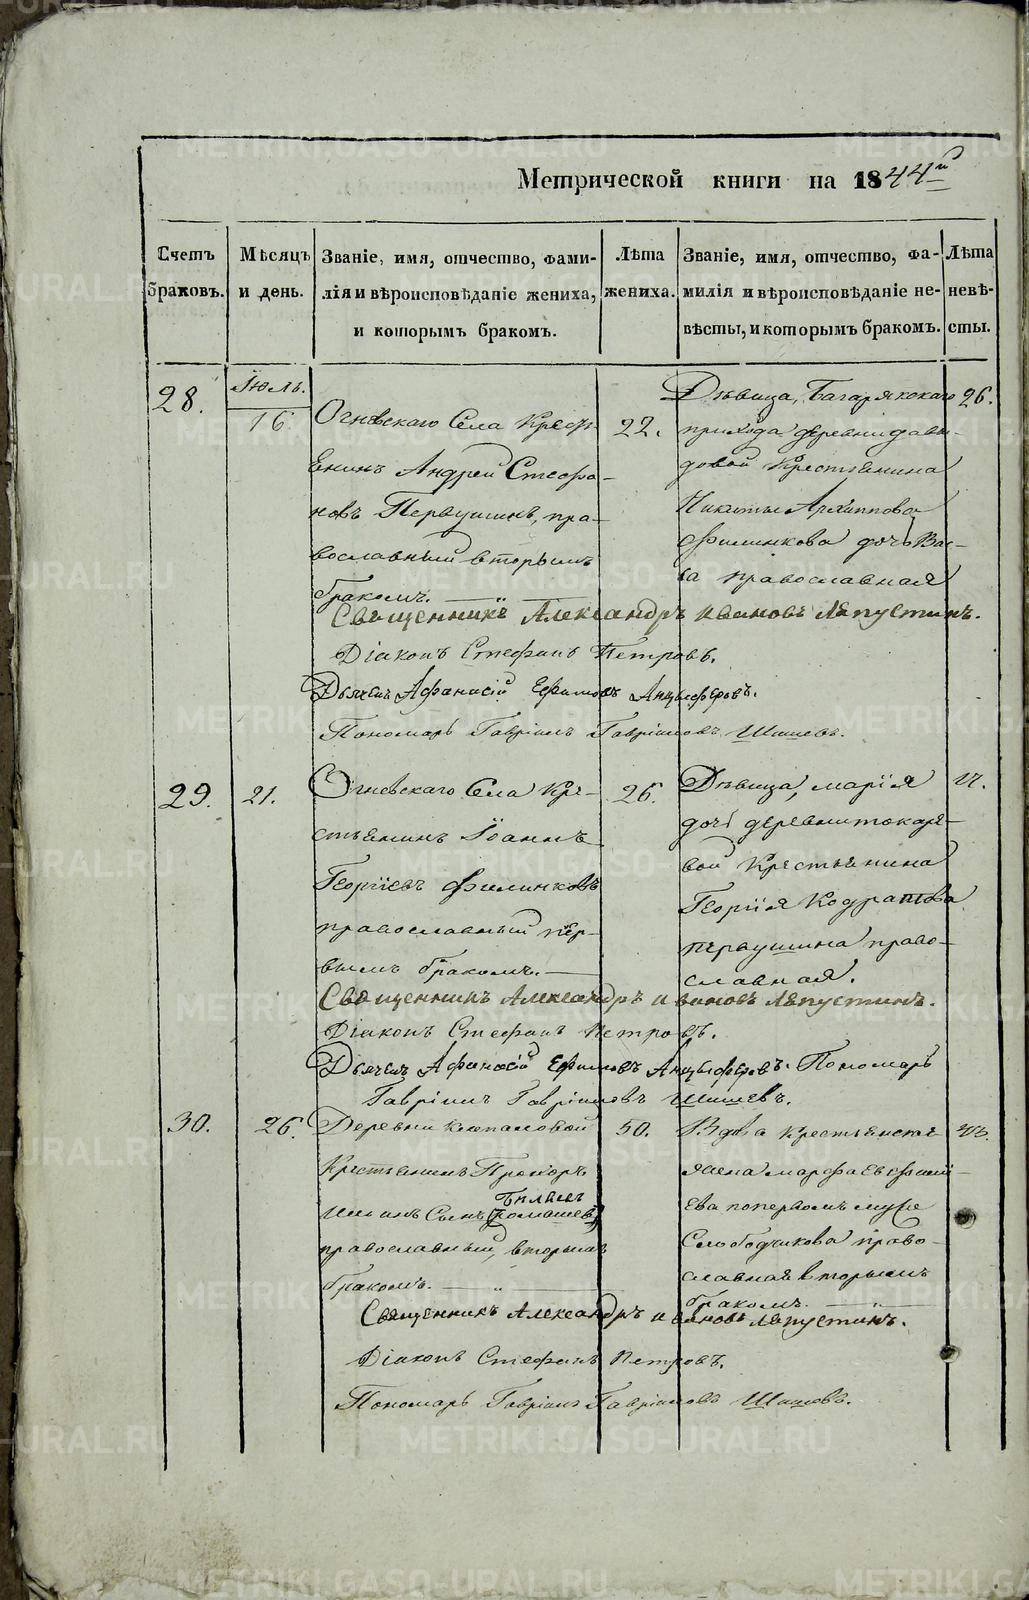 Метрической книги на 1844й
Счетъ браковъ.
Мѣсяцъ и день.
Званіе, имя, отчество, фами-
лія и вѣроисповѣданіе жениха,
и которымъ бракомъ.
Лѣта жениха.
Званіе, имя, отчество, фа-
милія и вѣроисповѣданіе не-
вѣсты, и которымъ бракомъ.
Лѣта невѣ-
сты.
28.
Іюль.
16
Огневскаго Села Крест
енинъ Андрей Стефа-
новъ Первушинъ, пра-
вославный вторымъ
бракомъ.
22.
Дѣвица, Багарякскаго
прихода деревни Давы-
довой Крестьянина
Никиты Архиппова
Филинкова дочь Вас-
са православная
26.
Священникъ Александръ Ивановъ Ляпустинъ.
Діаконъ Стефанъ Петровъ.
Дьячекъ Афанасій Ефимовъ Анцыферовъ.
Пономарь Гавріилъ Гавріиловъ Шишевъ.
29.
21.
Огневскаго Села Кре-
стьянинъ Іоаннъ
Георгіевъ Филинковъ
православный пер-
вымъ бракомъ.
26.
Дѣвица, Марія
дочь деревни Токаре-
вой Крестьянина
Георгія Кодратова
Первушина право-
славная.
Священникъ Александръ Ивановъ Ляпустинъ.
Діаконъ Стефанъ Петровъ.
Дьячекъ Афанасій Ефимовъ Анцыферовъ. Пономарь
Гавріилъ Гавріиловъ Шишевъ.
30.
26.
Деревни
Крестьянинъ Прокоръ
Сынъ
православный, вторымъ
бракомъ.
50.
Вдова крестьянская
жена Марфа
Ева по первомъ муже
Слободчикова право-
славная вторымъ
бракомъ.
Священникъ Александръ Ивановъ Ляпустинъ.
Діаконъ Стефанъ Петровъ.
Пономарь Гавріилъ Гавріиловъ Шишевъ.
METRIKI.GASO-URAL.RU